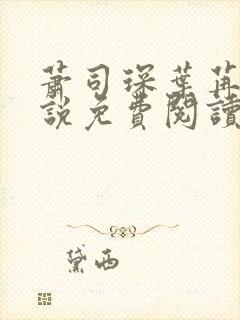 蕭司琛葉苒
說免費閱讀
黛西